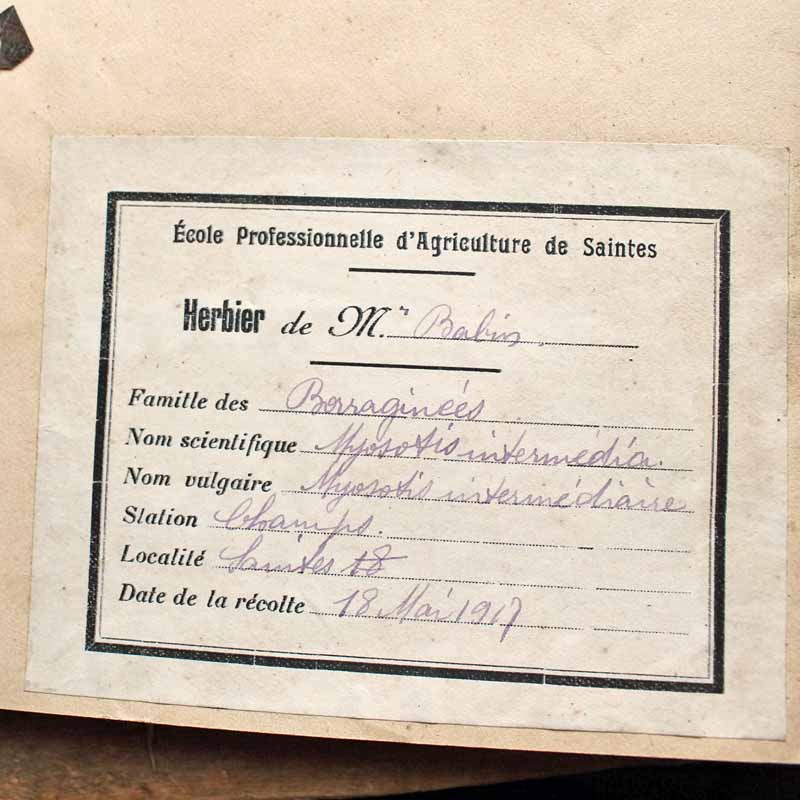 École Professionnelle d'Agriculture de Saintes
Herbier de M.r Babin.
Famille des Borraginéés
Nom scientifique Myosotis intermédia.
Nom vulgaire Myosotis intermédiaire
Station Champs.
Localité Saintes
Date de la récolte 18 Mai 1917